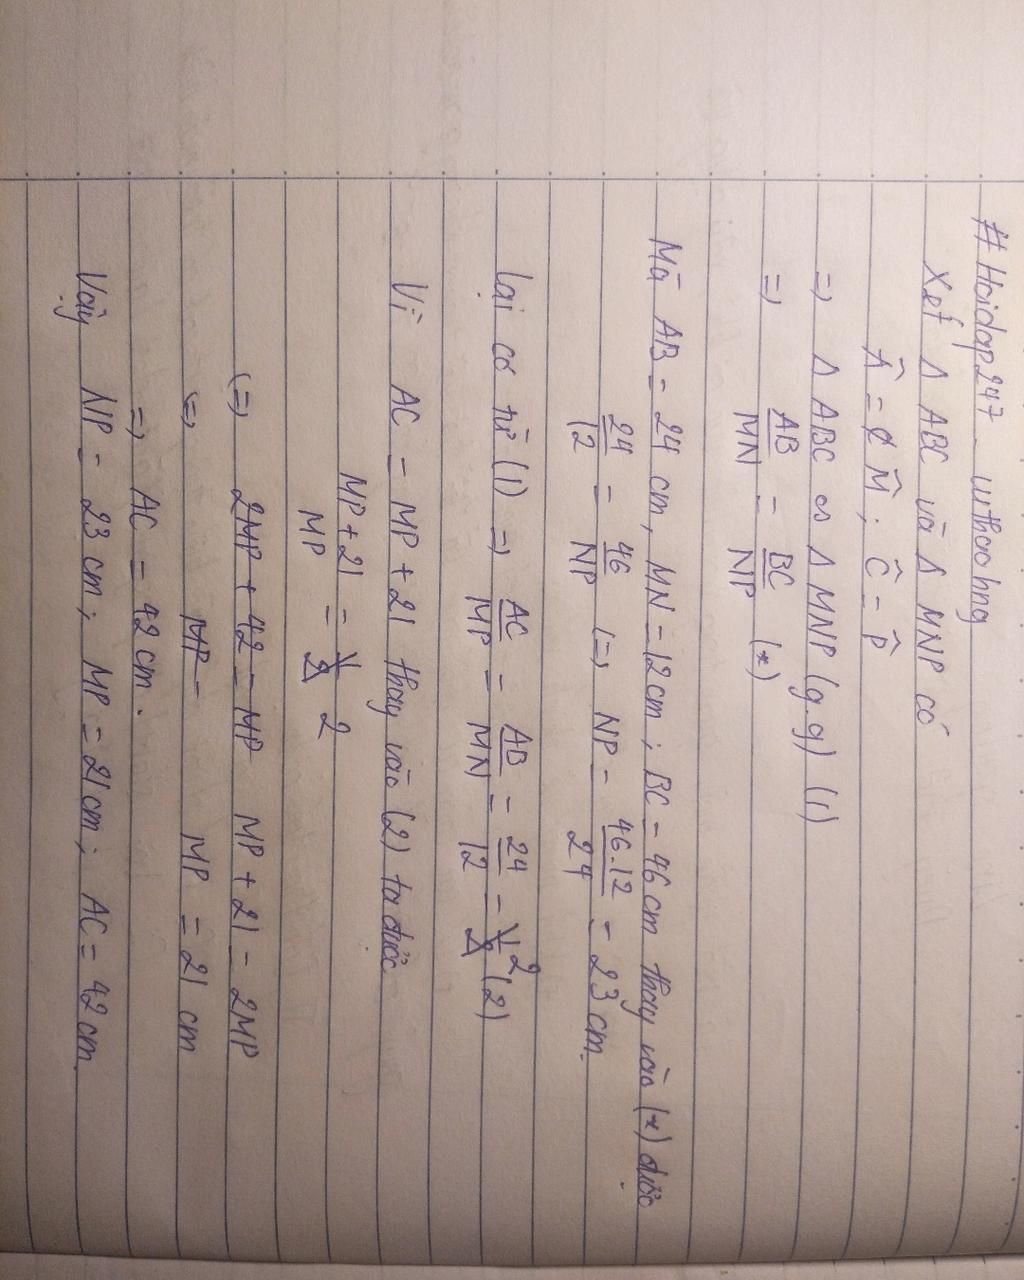 # Hoidap247 _ uthaohng
Xét Δ ABC và Δ MNP có
Â = M̂ ; Ĉ = P̂
=) Δ ABC ∽ Δ MNP (g.g) (1)
=) AB/MN = BC/NP (*)
Mà AB = 24 cm, MN = 12 cm ; BC = 46 cm thay vào (*) được
24/12 = 46/NP (=) NP = 46.12/24 = 23 cm.
Lại có từ (1) =) AC/MP = AB/MN = 24/12 = 2 (2)
Vì AC = MP + 21 thay vào (2) ta được
MP + 21/MP = 2
(=) 2MP + 42 = MP MP + 21 = 2MP
(=) MP = MP = 21 cm
=) AC = 42 cm.
Vậy NP = 23 cm ; MP = 21 cm ; AC = 42 cm.